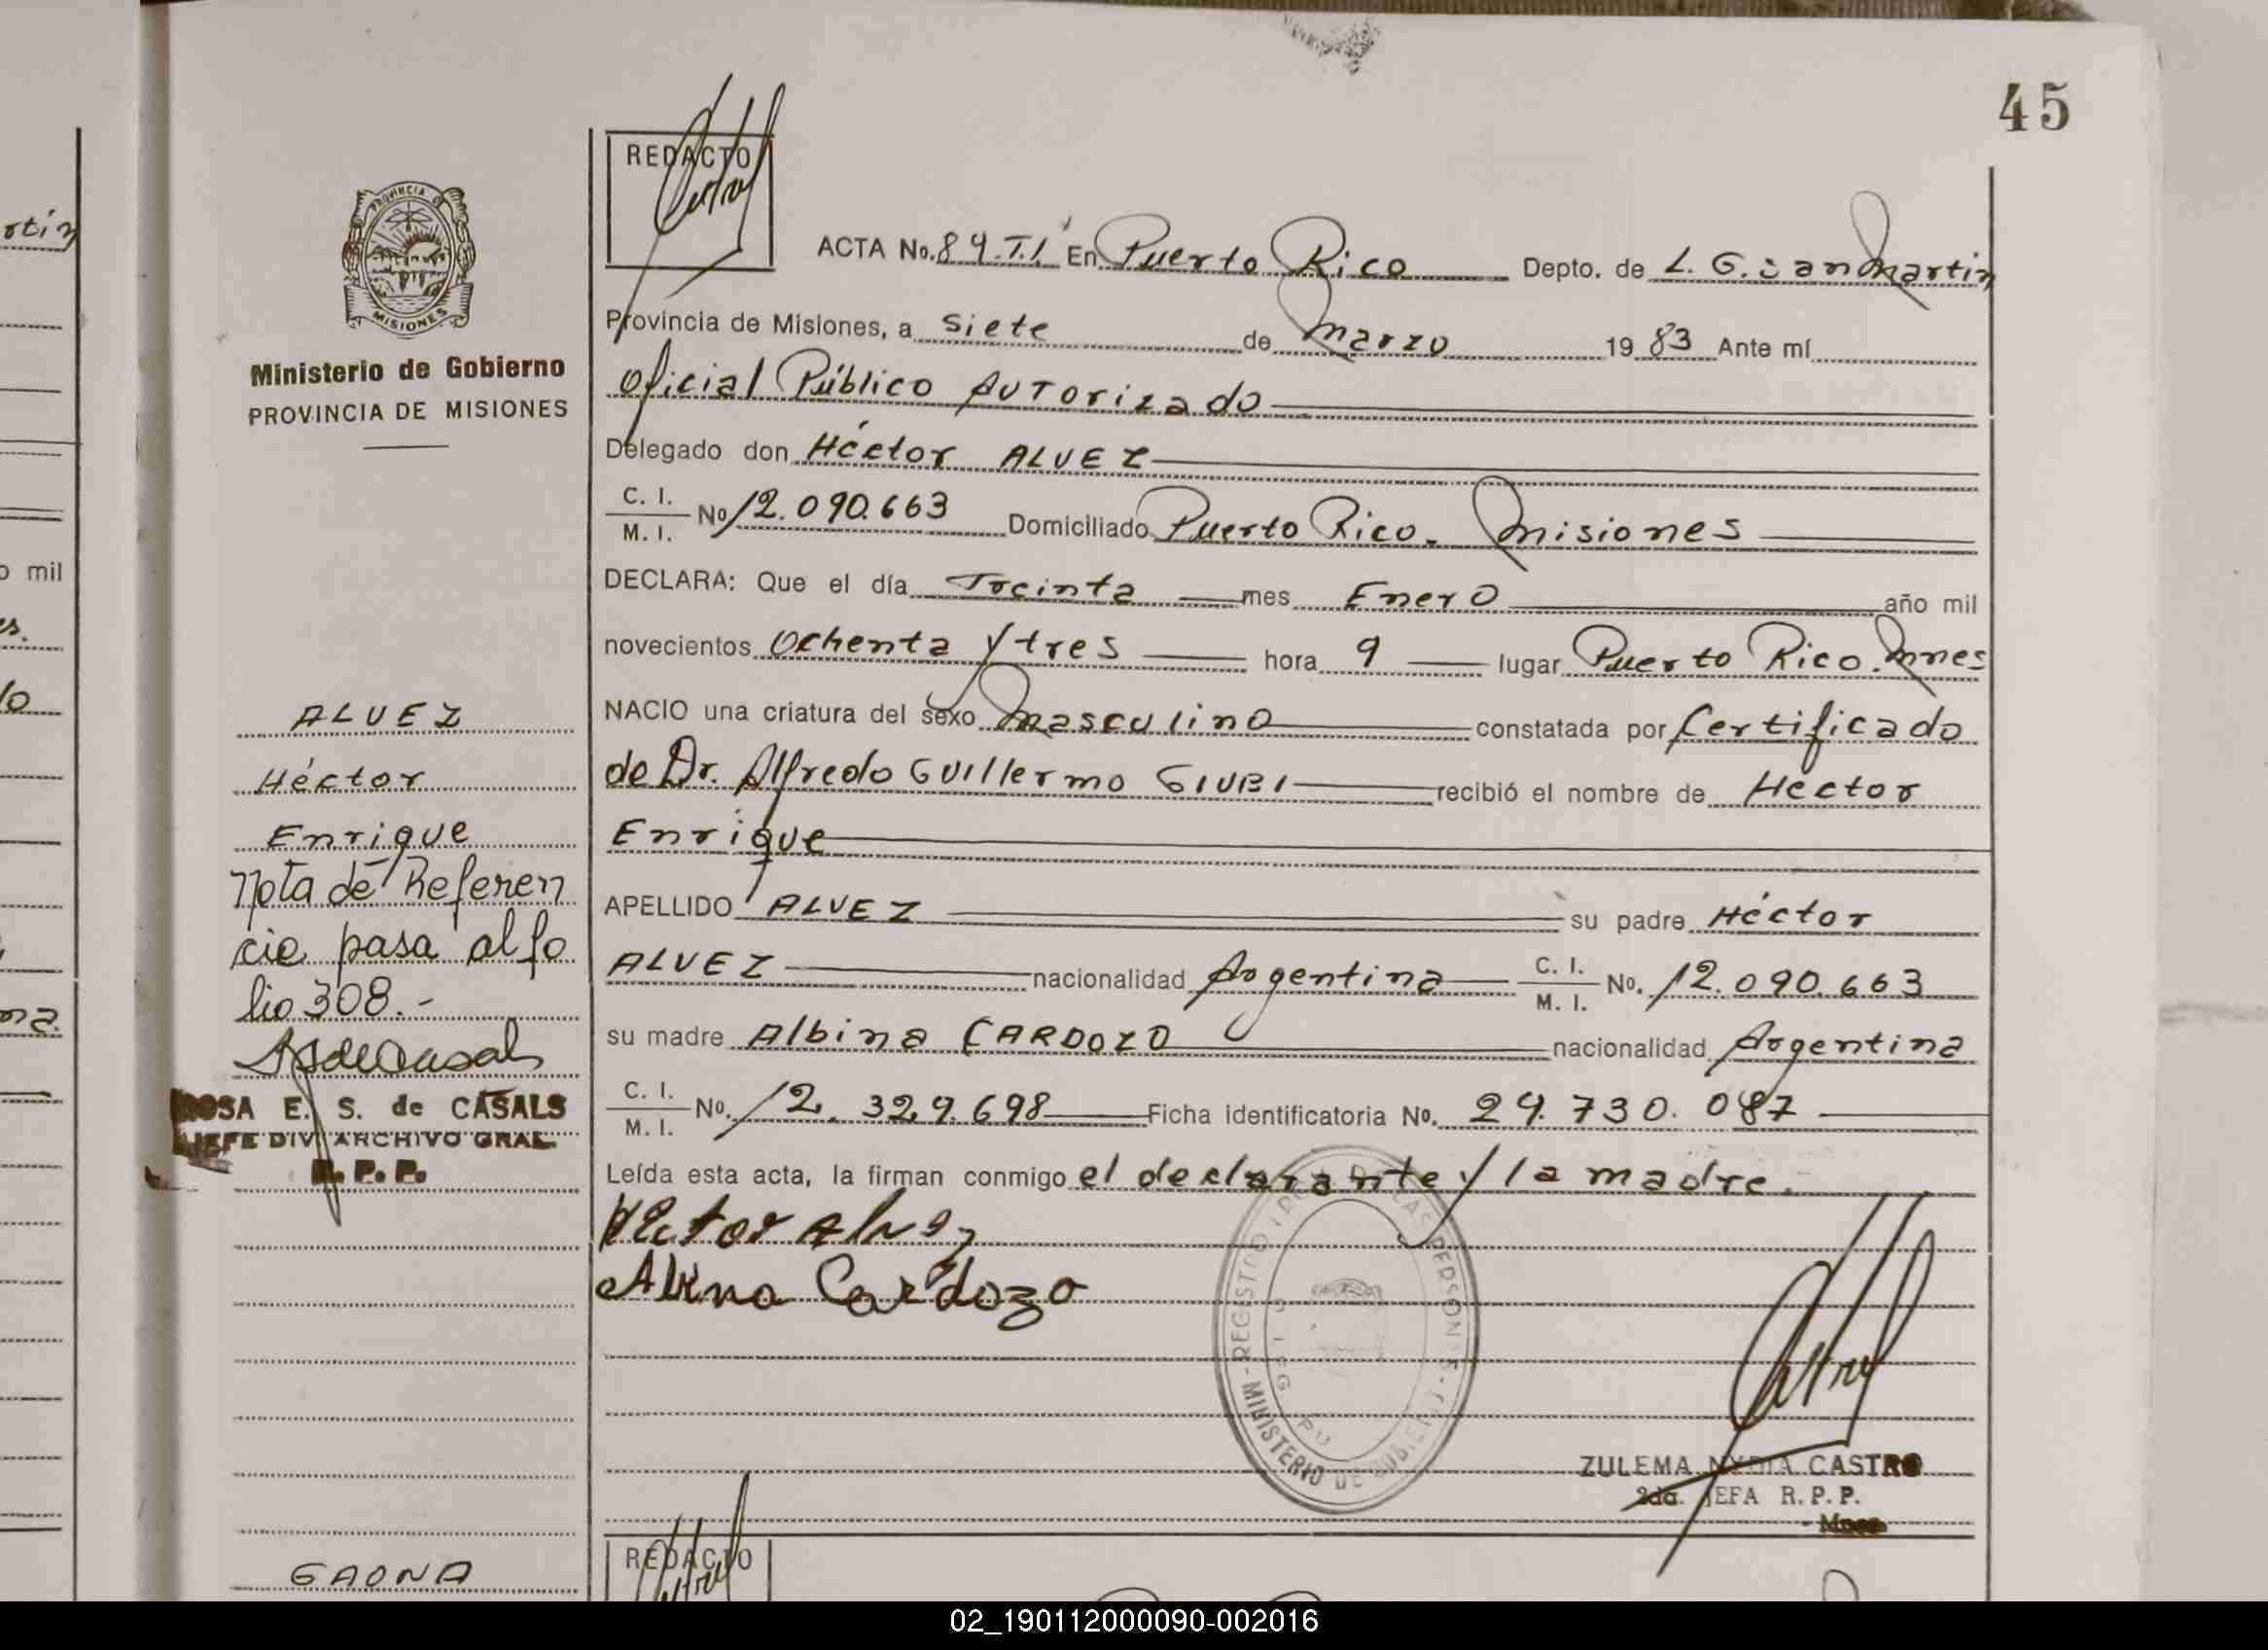 45
REDACTO
PROVINCIA
MISIONES
Ministerio de Gobierno
PROVINCIA DE MISIONES
ACTA No. 89.T.I. En Puerto Rico Depto. de L. G. San Martin
Provincia de Misiones, a siete de Marzo 1983 Ante mí
Oficial Público Autorizado
Delegado don Héctor ALVEZ
C. I.
M. I. Nº 12.090.663 Domiciliado Puerto Rico. Misiones
DECLARA: Que el día Treinta mes Enero año mil
novecientos Ochenta y tres hora 9 lugar Puerto Rico. Mnes
NACIO una criatura del sexo Masculino constatada por Certificado
de Dr. Alfredo Guillermo GIUBI recibió el nombre de Héctor
Enrique
APELLIDO ALVEZ su padre Héctor
ALVEZ nacionalidad Argentina C. I.
M. I. Nº. 12.090.663
su madre Albina CARDOZO nacionalidad Argentina
C. I.
M. I. Nº. 12.329.698 Ficha identificatoria Nº. 29.730.087
Leída esta acta, la firman conmigo el declarante y la madre.
Hector Alvez
Albina Cardozo
ZULEMA NYDIA CASTRO
2da. JEFA R. P. P.
ALVEZ
Héctor
Enrique
Nota de Referen
cia pasa al fo
lio 308.-
ROSA E. S. de CASALS
JEFE DIV. ARCHIVO GRAL.
R. P. P.
REGISTRO
MINISTERIO DE GOBIERNO
GAONA
REDACTO
rtin
o mil
es.
lo
na.
02_190112000090-002016